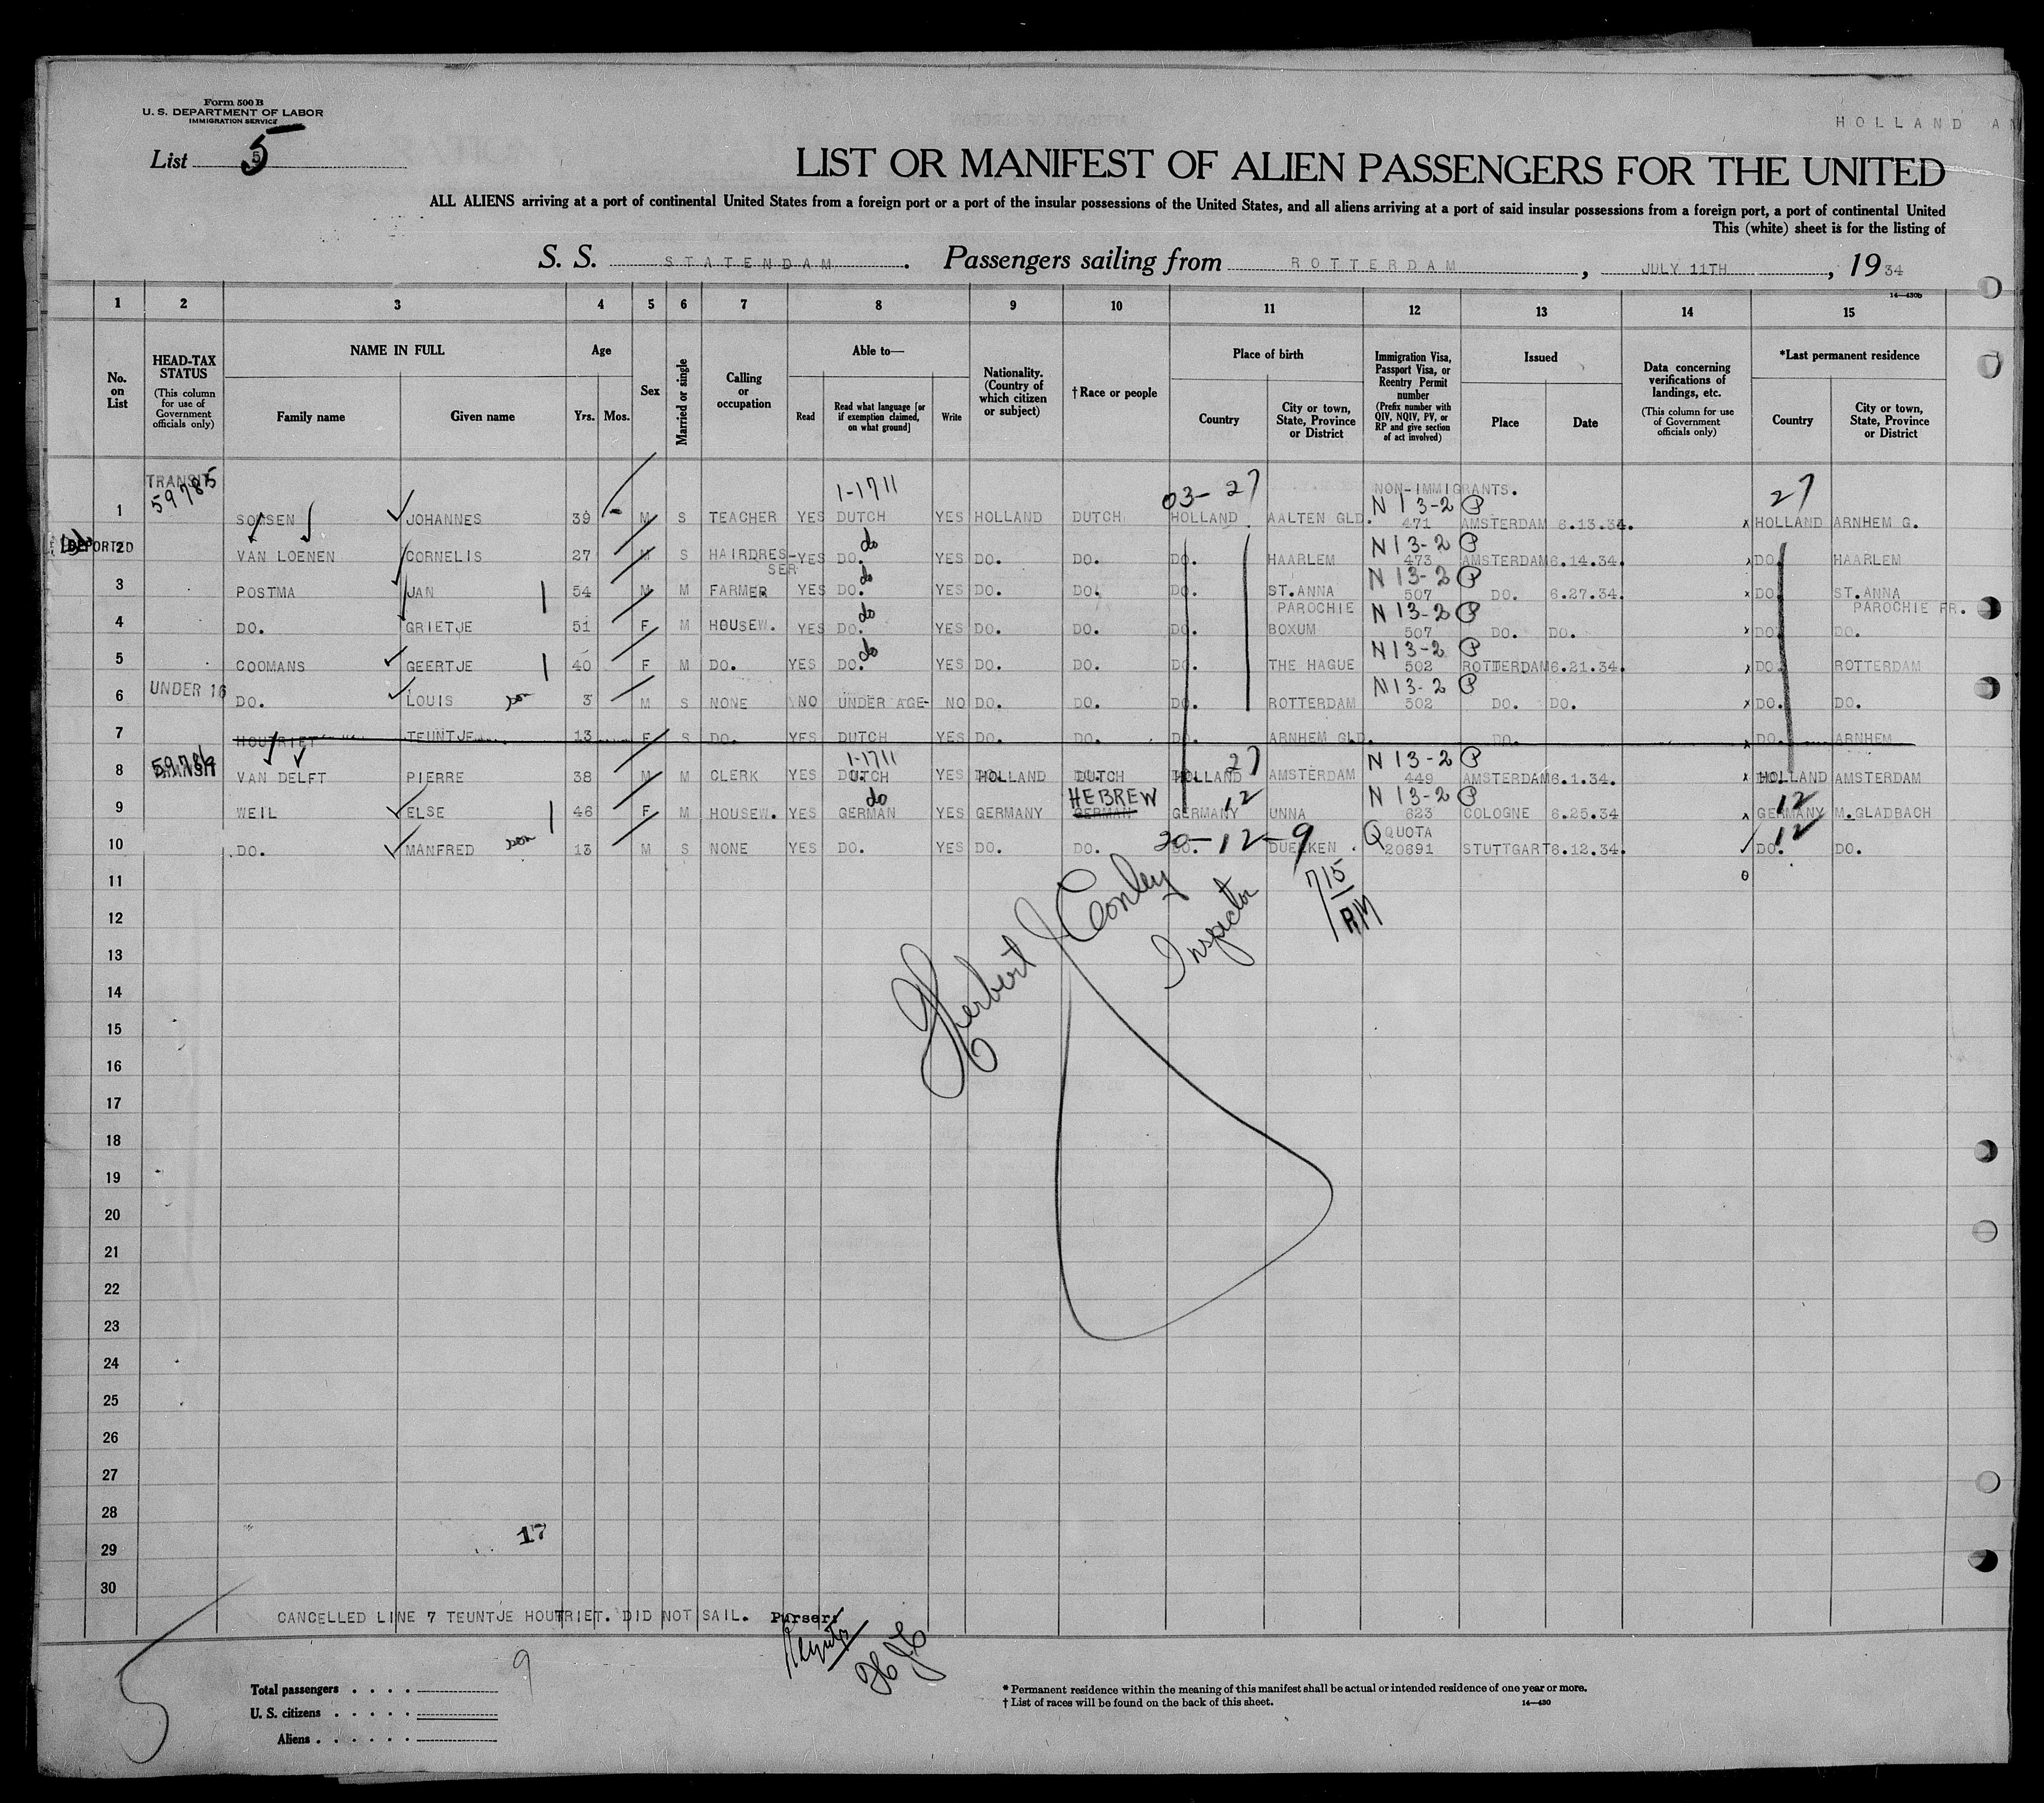 Form 500 B
U. S. DEPARTMENT OF LABOR
IMMIGRATION SERVICE
HOLLAND A
List 5
LIST OR MANIFEST OF ALIEN PASSENGERS FOR THE UNITED
ALL ALIENS arriving at a port of continental United States from a foreign port or a port of the insular possessions of the United States, and all aliens arriving at a port of said insular possessions from a foreign port, a port of continental United
This (white) sheet is for the listing of
S. S. STATENDAM. Passengers sailing from ROTTERDAM, JULY 11TH, 1934
14—430b
1 2 3 4 5 6 7 8 9 10 11 12 13 14 15
No. on List
HEAD-TAX STATUS (This column for use of Government officials only)
NAME IN FULL Family name Given name
Age Yrs. Mos.
Sex
Married or single
Calling or occupation
Able to— Read Read what language [or if exemption claimed, on what ground] Write
Nationality. (Country of which citizen or subject)
†Race or people
Place of birth Country City or town, State, Province or District
Immigration Visa, Passport Visa, or Reentry Permit number (Prefix number with QIV, NQIV, PV, or RP and give section of act involved)
Issued Place Date
Data concerning verifications of landings, etc. (This column for use of Government officials only)
*Last permanent residence Country City or town, State, Province or District
TRANSIT 59785 1-1711 03-27 NON-IMMIGRANTS. N 13-2 P 27
1 JOHANNES 39 M S TEACHER YES DUTCH YES HOLLAND DUTCH HOLLAND AALTEN GLD. 471 AMSTERDAM 6.13.34. x HOLLAND ARNHEM G.
DEPORTED do N 13-2 P
2 VAN LOENEN CORNELIS 27 M S HAIRDRES-SER YES DO. YES DO. DO. DO. HAARLEM 473 AMSTERDAM 6.14.34. x DO. HAARLEM
do N 13-2 P
3 POSTMA JAN 54 M M FARMER YES DO. YES DO. DO. DO. ST.ANNA PAROCHIE 507 DO. 6.27.34. x DO. ST.ANNA PAROCHIE FR.
do N 13-2 P
4 DO. GRIETJE 51 F M HOUSEW. YES DO. YES DO. DO. DO. BOXUM 507 DO. DO. x DO. DO.
do N 13-2 P
5 COOMANS GEERTJE 40 F M DO. YES DO. YES DO. DO. DO. THE HAGUE 502 ROTTERDAM 6.21.34. x DO. ROTTERDAM
UNDER 16 N 13-2 P
6 DO. LOUIS son 3 M S NONE NO UNDER AGE- NO DO. DO. DO. ROTTERDAM 502 DO. DO. x DO. DO.
7 HOUTRIET TEUNTJE 13 F S DO. YES DUTCH YES DO. DO. DO. ARNHEM GLD. DO. x DO. ARNHEM
TRANSIT 59786 1-1711 27 N 13-2 P
8 VAN DELFT PIERRE 38 M M CLERK YES DUTCH YES HOLLAND DUTCH HOLLAND AMSTERDAM 449 AMSTERDAM 6.1.34. x HOLLAND AMSTERDAM
do HEBREW 12 N 13-2 P 12
9 WEIL ELSE 46 F M HOUSEW. YES GERMAN YES GERMANY GERMAN GERMANY UNNA 623 COLOGNE 6.25.34 x GERMANY M.GLADBACH
20-12-9 Q QUOTA 12
10 DO. MANFRED son 13 M S NONE YES DO. YES DO. DO. DO. DUELKEN 20691 STUTTGART 6.12.34. DO. DO.
11
12
13
14
15
16
17
18
19
20
21
22
23
24
25
26
27
28
29
30
Herbert J Conley
Inspector
715
RM
17
CANCELLED LINE 7 TEUNTJE HOUTRIET. DID NOT SAIL. Purser:
HJC
5
9
Total passengers . . . .
U. S. citizens . . . . .
Aliens . . . . . .
* Permanent residence within the meaning of this manifest shall be actual or intended residence of one year or more.
† List of races will be found on the back of this sheet.
14—430